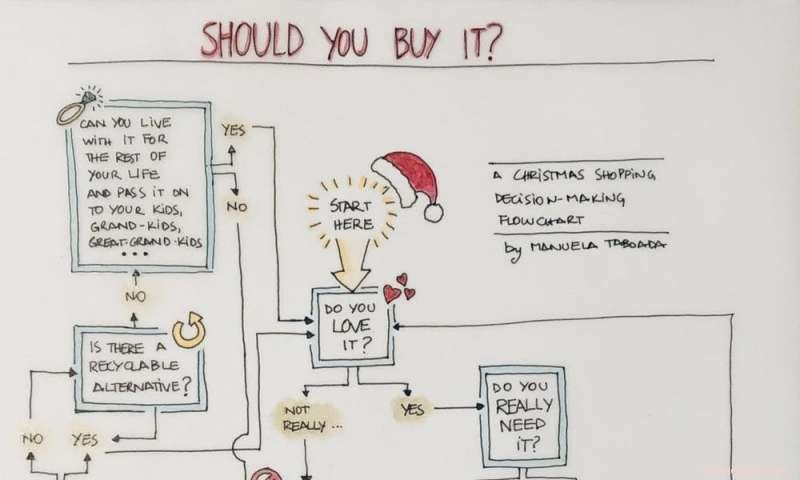 SHOULD YOU BUY IT?
CAN YOU LIVE
WITH IT FOR
THE REST OF
YOUR LIFE
AND PASS IT ON
TO YOUR KIDS,
GRAND-KIDS,
GREAT-GRAND-KIDS
...
YES
NO
START
HERE
A CHRISTMAS SHOPPING
DECISION-MAKING
FLOWCHART
by MANUELA TABOADA
NO
DO YOU
LOVE
IT?
IS THERE A
RECYCLABLE
ALTERNATIVE?
NOT
REALLY...
YES
DO YOU
REALLY
NEED
IT?
NO
YES